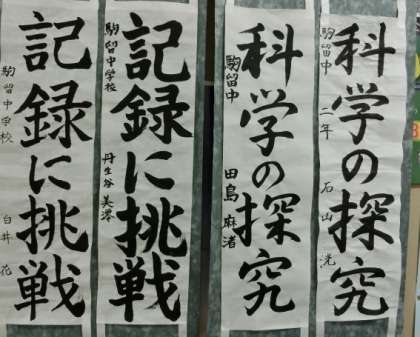 科学の探究
駒留中 二年 石山 光
科学の探究
駒留中 田島 麻渚
記録に挑戦
駒留中学校 丹生谷 美澪
記録に挑戦
駒留中学校 白井 花